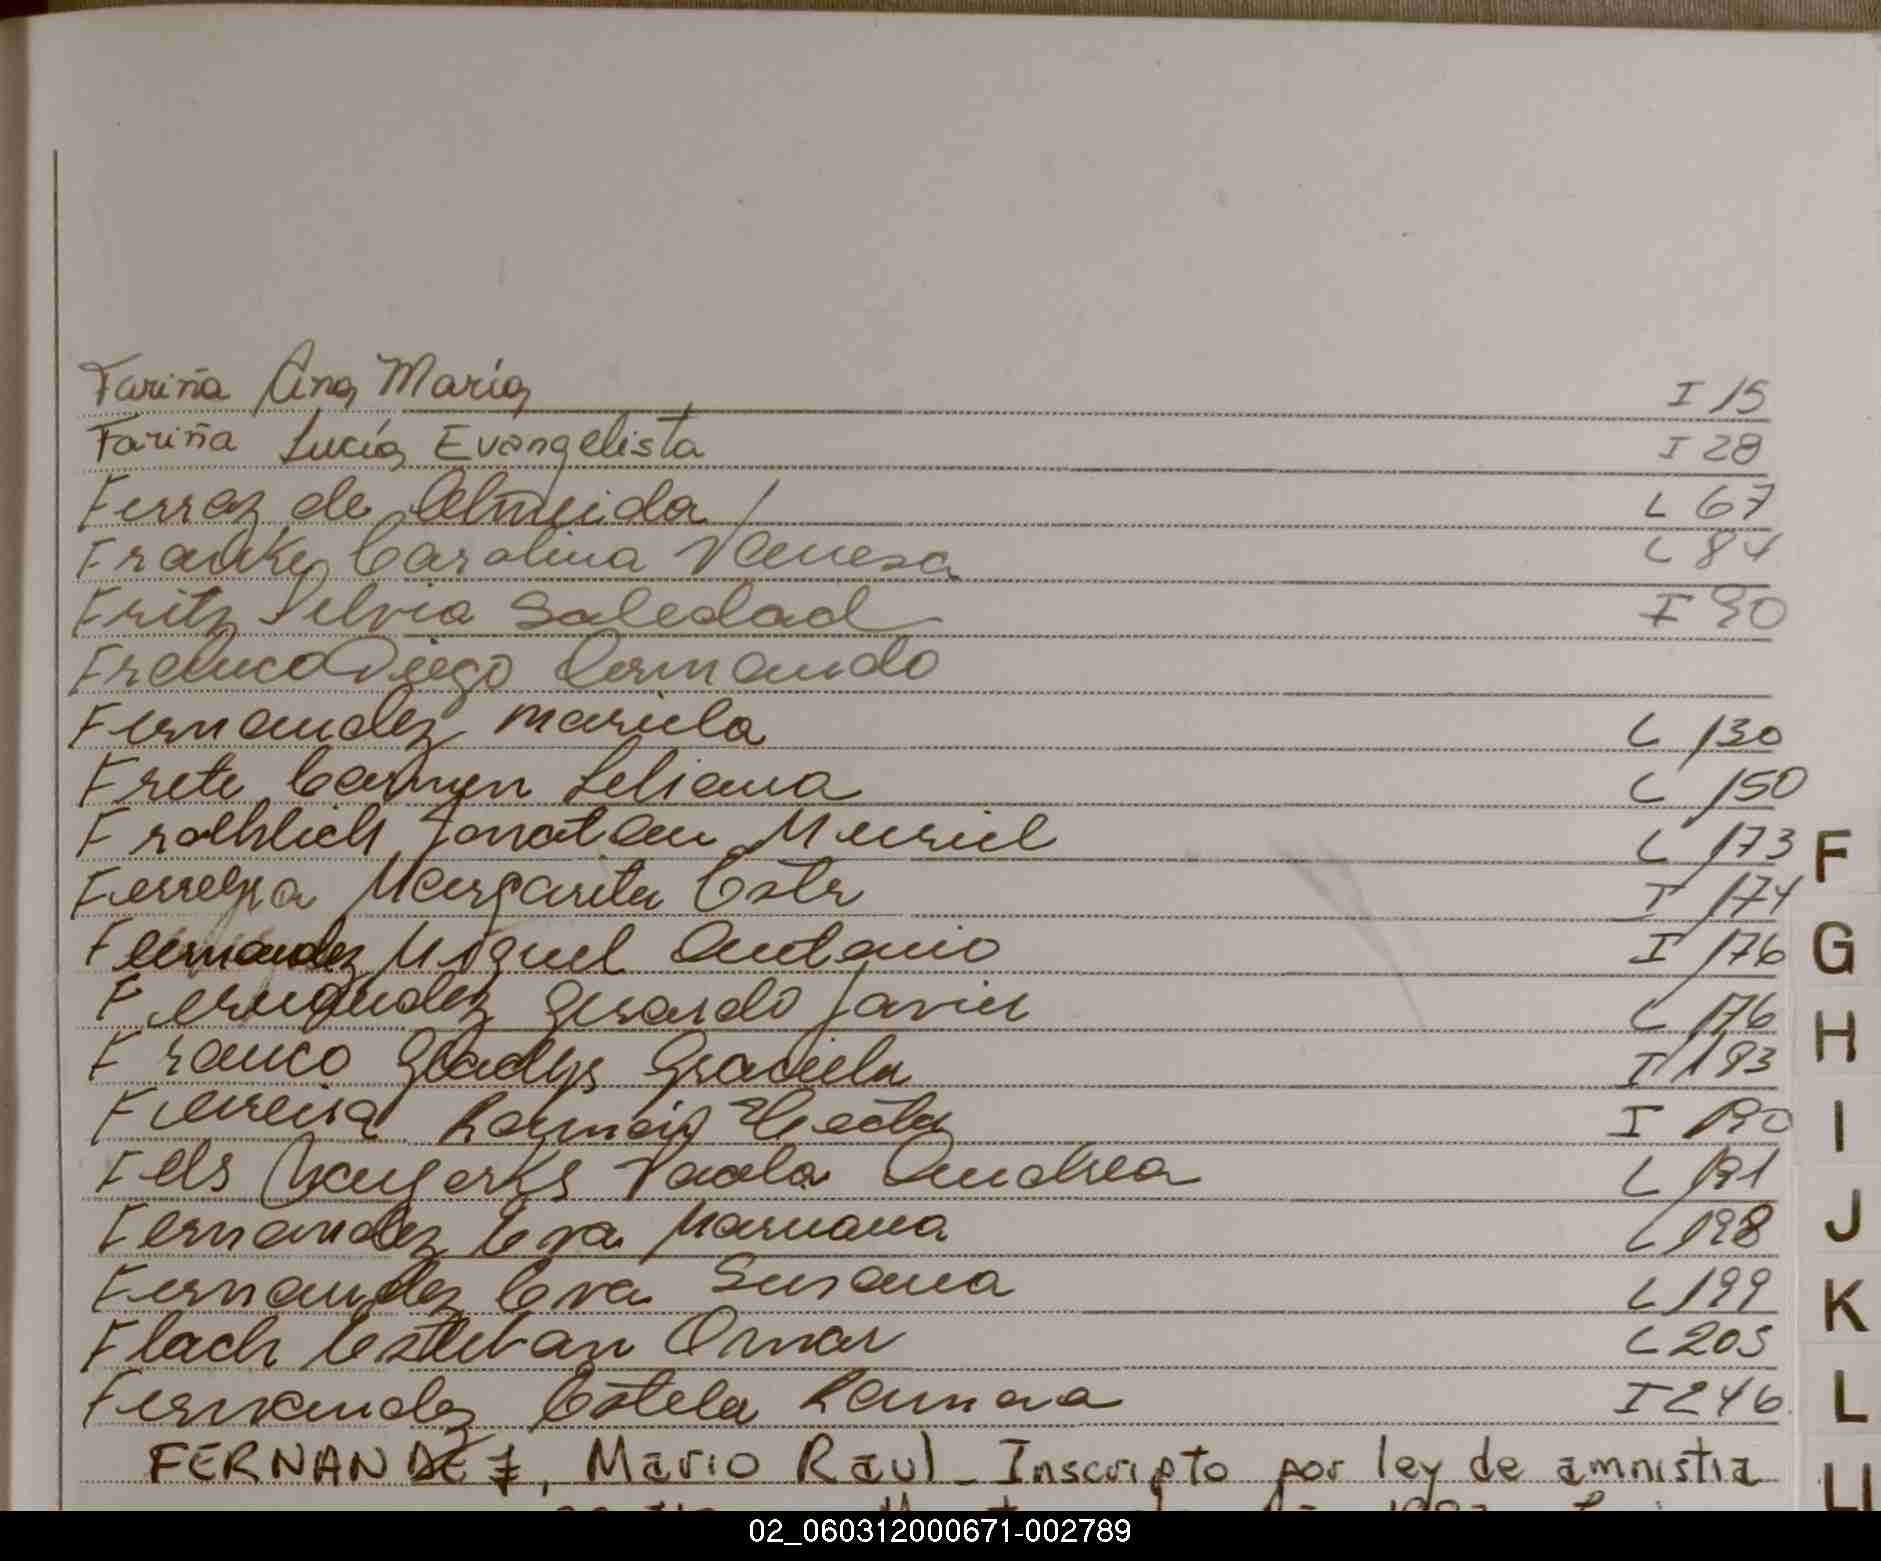 Fariña Ana María I 15
Fariña Lucía Evangelista I 28
Ferraz de Almeida L 67
Franke Carolina Vanesa L 84
Fritz Silvia Soledad I 90
Franco Diego Armando
Fernandez Mariela L 130
Frete Carmen Liliana L 150
Froehlich Jonatan Muriel L 173
Ferreyra Margarita Ester I 174
Fernandez Miguel Antonio I 176
Fernandez Gerardo Javier L 176
Franco Gladys Graciela I 183
Ferreira Ramón Hector I 190
Fels Paola Andrea L 191
Fernandez Eva Mariana L 198
Fernandez Eva Susana L 199
Flach Esteban Omar L 205
Fernandez Estela Ramona I 246
FERNANDEZ, Mario Raul_ Inscripto por ley de amnistia
F
G
H
I
J
K
L
02_060312000671-002789